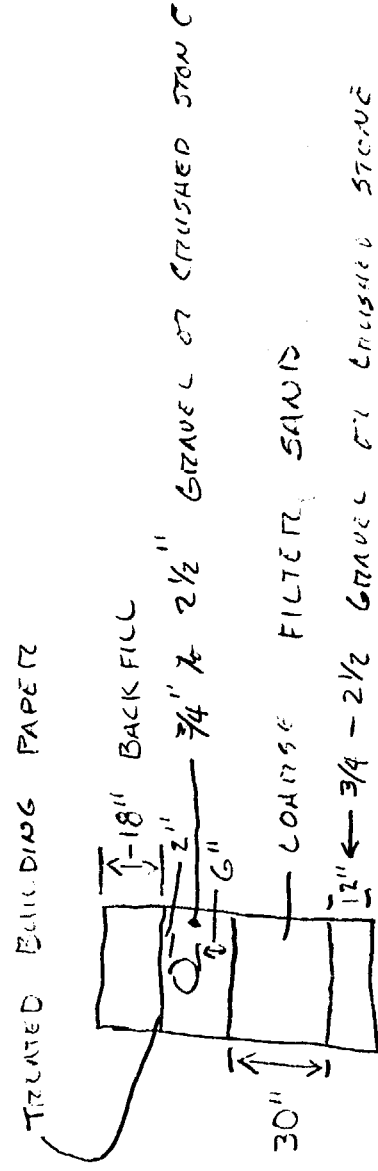 TREATED BUILDING PAPER
18" BACKFILL
2"
3/4" to 2 1/2" GRAVEL or CRUSHED STONE
6"
30"
COARSE FILTER SAND
12" ← 3/4 - 2 1/2 GRAVEL or CRUSHED STONE